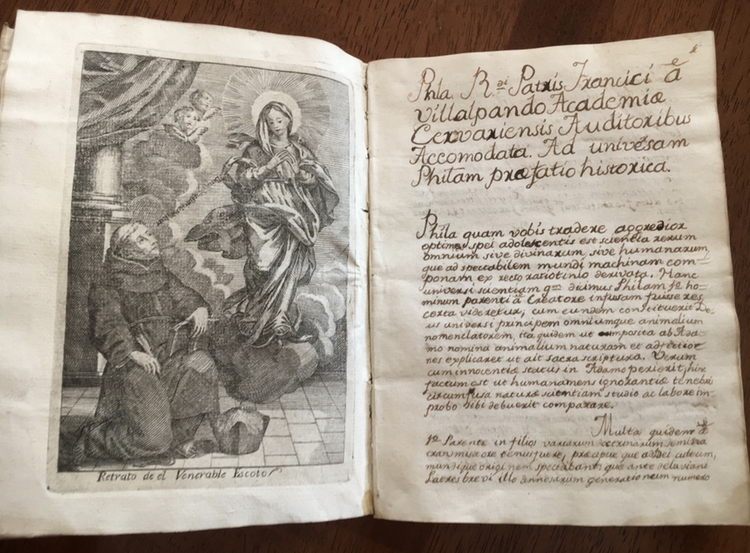 Retrato de el Venerable Escoto
Phla. R.di Patris Francisci á
Villalpando Academiæ
Cervariensis Auditoribus
Accomodata. Ad univesam
Philam præfatio historica.
Phila quam vobis tradere aggredior
optimæ spei adolescentis est scientia rerum
omnium sive divinarum, sive humanarum,
que ad spectabilem mundi machinam com=
ponam ex recto ratiotinio derivata. Hanc
universi scientiam qm dicimus Philam ho=
minum parenti a Creatore infusam fuisse res
certa videretur, cum eundem constituerit De=
us universi principem omniumque animalium
nomenclatorem, ita quidem ut composita ab Ada=
mo nomina animalium naturam et
nes explicaret ut ait sacra scriptura. Verum
cum innocentiæ status in Adamo perierit, hinc
factum est ut humana mens ignorantiæ tenebris
circumfusa naturæ scientiam studio ac labore im=
probo sibi debuerit comparare.
Multa quidem
Parente in filios variarum doctrinarum semina
fuere, precipue que ad Dei cultum,
mundique originem spectabant; que ante diluviani
Patres brevi illo generationum numero